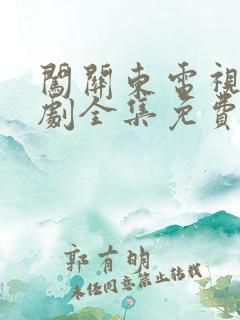 闖關東電視
劇全集免費
郭有明
未经同意禁止转载